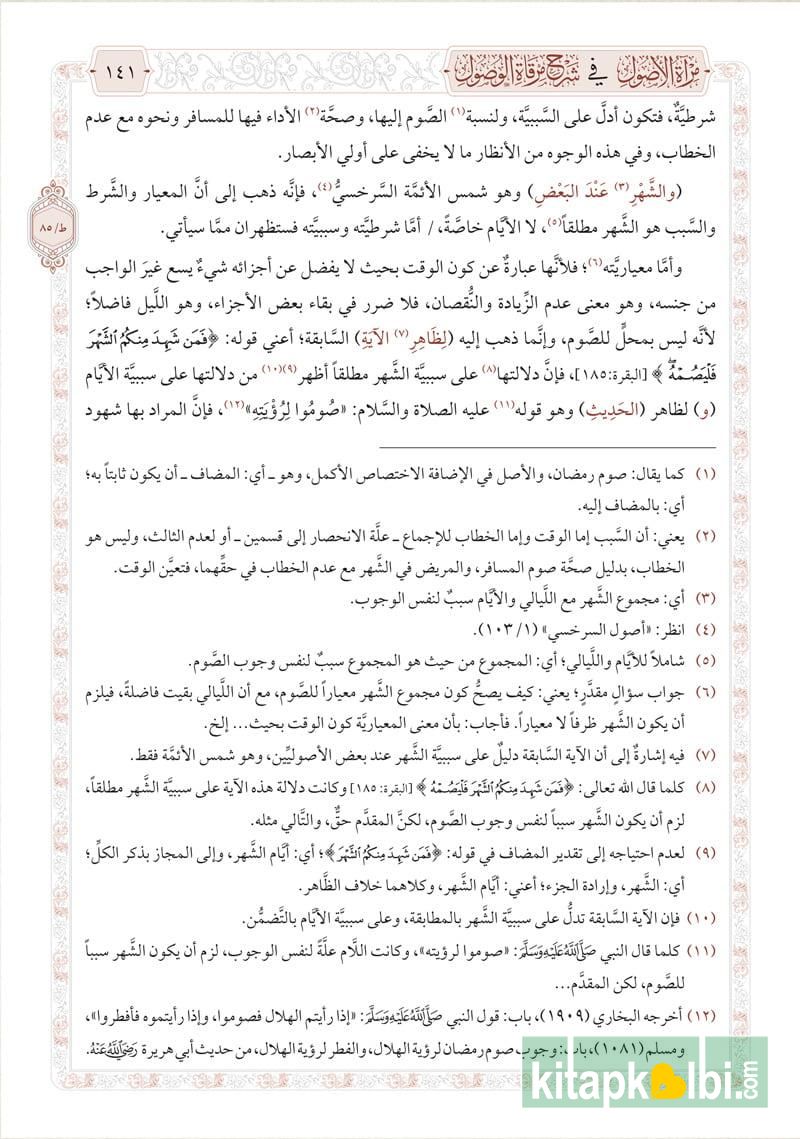 مرآة الأصول في شرح مرقاة الوصول
١٤١
شرطيَّةٌ، فتكون أدلَّ على السَّببيَّة، ولنسبة(١) الصَّوم إليها، وصحَّة(٢) الأداء فيها للمسافر ونحوه مع عدم
الخطاب، وفي هذه الوجوه من الأنظار ما لا يخفى على أولي الأبصار.
(والشَّهْرِ(٣) عَنْدَ البَعْضِ) وهو شمس الأئمَّة السَّرخسيُّ(٤)، فإنَّه ذهب إلى أنَّ المعيار والشَّرط
والسَّبب هو الشَّهر مطلقاً(٥)، لا الأيَّام خاصَّةً، / أمَّا شرطيَّته وسببيَّته فستظهران ممَّا سيأتي.
ط/ ٨٥
وأمَّا معياريَّته(٦)؛ فلأنَّها عبارةٌ عن كون الوقت بحيث لا يفضل عن أجزائه شيءٌ يسع غيرَ الواجب
من جنسه، وهو معنى عدم الزِّيادة والنُّقصان، فلا ضرر في بقاء بعض الأجزاء، وهو اللَّيل فاضلاً؛
لأنَّه ليس بمحلٍّ للصَّوم، وإنَّما ذهب إليه (لِظَاهِرِ(٧) الآيَةِ) السَّابقة؛ أعني قوله: ﴿فَمَن شَهِدَ مِنكُمُ ٱلشَّهْرَ
فَلْيَصُمْهُ ۖ ﴾ [البقرة: ١٨٥]، فإنَّ دلالتها(٨) على سببيَّة الشَّهر مطلقاً أظهر(٩)(١٠) من دلالتها على سببيَّة الأيَّام
(و) لظاهر (الحَدِيثِ) وهو قوله(١١) عليه الصلاة والسَّلام: «صُومُوا لِرُؤْيَتِهِ»(١٢)، فإنَّ المراد بها شهود
(١) كما يقال: صوم رمضان، والأصل في الإضافة الاختصاص الأكمل، وهو ـ أي: المضاف ـ أن يكون ثابتاً به؛
أي: بالمضاف إليه.
(٢) يعني: أن السَّبب إما الوقت وإما الخطاب للإجماع ـ علَّة الانحصار إلى قسمين ـ أو لعدم الثالث، وليس هو
الخطاب، بدليل صحَّة صوم المسافر، والمريض في الشَّهر مع عدم الخطاب في حقِّهما، فتعيَّن الوقت.
(٣) أي: مجموع الشَّهر مع اللَّيالي والأيَّام سببٌ لنفس الوجوب.
(٤) انظر: «أصول السرخسي» (١/ ١٠٣).
(٥) شاملاً للأيَّام واللَّيالي؛ أي: المجموع من حيث هو المجموع سببٌ لنفس وجوب الصَّوم.
(٦) جواب سؤالٍ مقدَّرٍ؛ يعني: كيف يصحُّ كون مجموع الشَّهر معياراً للصَّوم، مع أن اللَّيالي بقيت فاضلةً، فيلزم
أن يكون الشَّهر ظرفاً لا معياراً. فأجاب: بأن معنى المعياريَّة كون الوقت بحيث... إلخ.
(٧) فيه إشارةٌ إلى أن الآية السَّابقة دليلٌ على سببيَّة الشَّهر عند بعض الأصوليِّين، وهو شمس الأئمَّة فقط.
(٨) كلما قال الله تعالى: ﴿فَمَن شَهِدَ مِنكُمُ ٱلشَّهْرَ فَلْيَصُمْهُ ﴾ [البقرة: ١٨٥] وكانت دلالة هذه الآية على سببيَّة الشَّهر مطلقاً،
لزم أن يكون الشَّهر سبباً لنفس وجوب الصَّوم، لكنَّ المقدَّم حقٌّ، والتَّالي مثله.
(٩) لعدم احتياجه إلى تقدير المضاف في قوله: ﴿فَمَن شَهِدَ مِنكُمُ ٱلشَّهْرَ﴾؛ أي: أيَّام الشَّهر، وإلى المجاز بذكر الكلِّ؛
أي: الشَّهر، وإرادة الجزء؛ أعني: أيَّام الشَّهر، وكلاهما خلاف الظَّاهر.
(١٠) فإن الآية السَّابقة تدلُّ على سببيَّة الشَّهر بالمطابقة، وعلى سببيَّة الأيَّام بالتَّضمُّن.
(١١) كلما قال النبي ﷺ: «صوموا لرؤيته»، وكانت اللَّام علَّةً لنفس الوجوب، لزم أن يكون الشَّهر سبباً
للصَّوم، لكن المقدَّم...
(١٢) أخرجه البخاري (١٩٠٩)، باب: قول النبي ﷺ: «إذا رأيتم الهلال فصوموا، وإذا رأيتموه فأفطروا»،
ومسلم (١٠٨١)، باب: وجوب صوم رمضان لرؤية الهلال، والفطر لرؤية الهلال، من حديث أبي هريرة رَضِيَ اللَّهُ عَنْهُ.
kitapkalbi.com